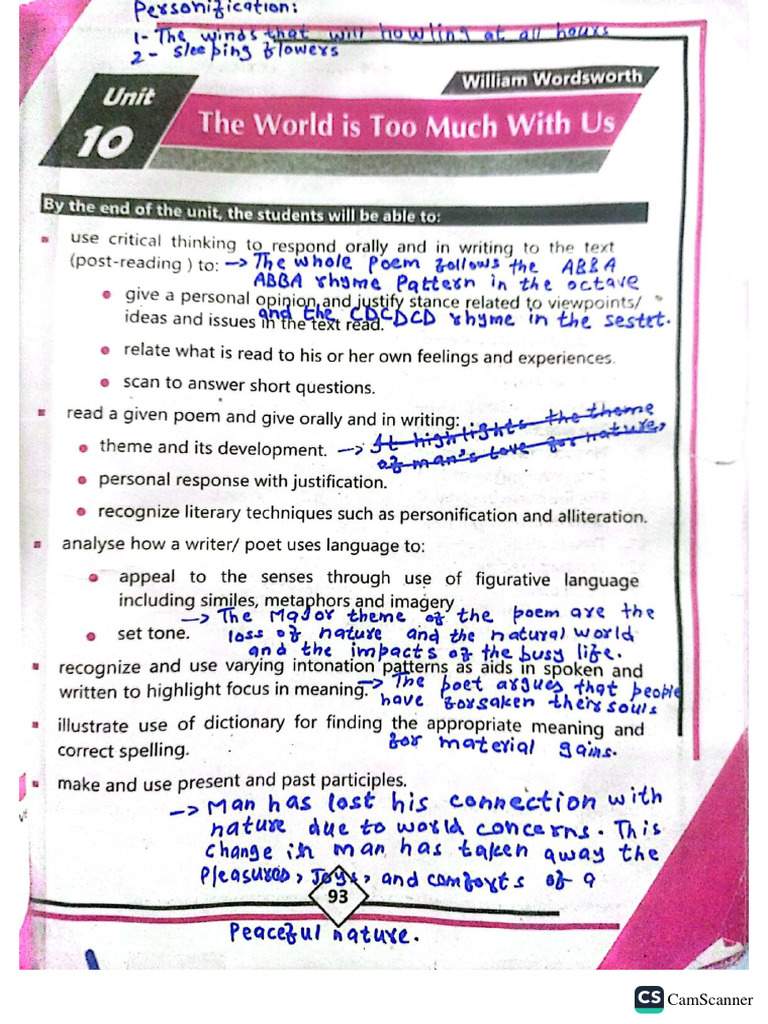 Personification:
1- The winds that will howling at all hours
2- sleeping flowers
William Wordsworth
Unit
10
The World is Too Much With Us
By the end of the unit, the students will be able to:
use critical thinking to respond orally and in writing to the text
(post-reading ) to: -> The whole poem follows the ABBA
ABBA rhyme Pattern in the octave
give a personal opinion and justify stance related to viewpoints/
and the CDCDCD rhyme in the sestet.
ideas and issues in the text read.
relate what is read to his or her own feelings and experiences.
scan to answer short questions.
read a given poem and give orally and in writing:
theme and its development. -> It highlights the theme
of man's love for nature,
personal response with justification.
recognize literary techniques such as personification and alliteration.
analyse how a writer/ poet uses language to:
appeal to the senses through use of figurative language
including similes, metaphors and imagery
-> The Major theme of the poem are the
set tone. loss of nature and the natural world
and the impacts of the busy life.
recognize and use varying intonation patterns as aids in spoken and
written to highlight focus in meaning. -> The poet argues that people
have forsaken their souls
illustrate use of dictionary for finding the appropriate meaning and
correct spelling. for material gains.
make and use present and past participles.
-> Man has lost his connection with
nature due to world concerns. This
change in man has taken away the
Pleasures, Joys, and comforts of a
93
Peaceful nature.
CS CamScanner